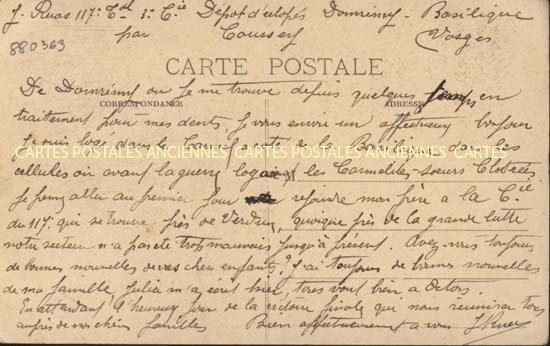 J. Ruas 117e Tal 3e Cie Dépot d'éclopés Domrémy - Basilique
par Coussey Vosges
880363
CARTE POSTALE
De Domrémy ou je me trouve depuis quelques jours en
CORRESPONDANCE ADRESSE
traitement pour mes dents, je vous envoie un affectueux bonjour
Je suis logé dans le Couvent de la Basilique dans les
CARTES POSTALES ANCIENNES CARTES POSTALES ANCIENNES CARTES
cellules où avant la guerre logaient les Carmelites - Soeurs Cloitrées
Je pense aller au premier jour rejoindre mon frère a la Cie
du 117e qui se trouve près de Verdun, quoique près de la grande lutte
notre secteur n'a pas été trop mauvais jusqu'à présent. Avez-vous toujours
de bonnes nouvelles de vos chers enfants? J'ai toujours de bonnes nouvelles
de ma famille Julia m'a ecrit hier tous vont bien a
En attendant l'heureux jour de la victoire finale qui nous réunira tous
auprès de nos chères familles Bien affectueusement a vous J Ruas